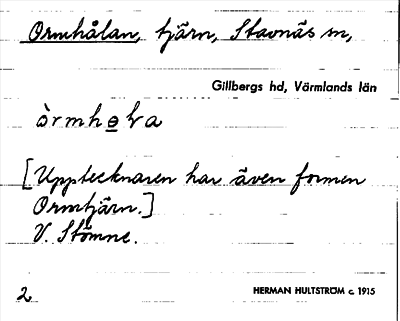 Ormhålan, tjärn, Stavnäs sn,
Gillbergs hd, Värmlands län
òrmhola
[Upptecknaren har även formen
Ormtjärn.]
V. Stömne.
2
HERMAN HULTSTRÖM c. 1915